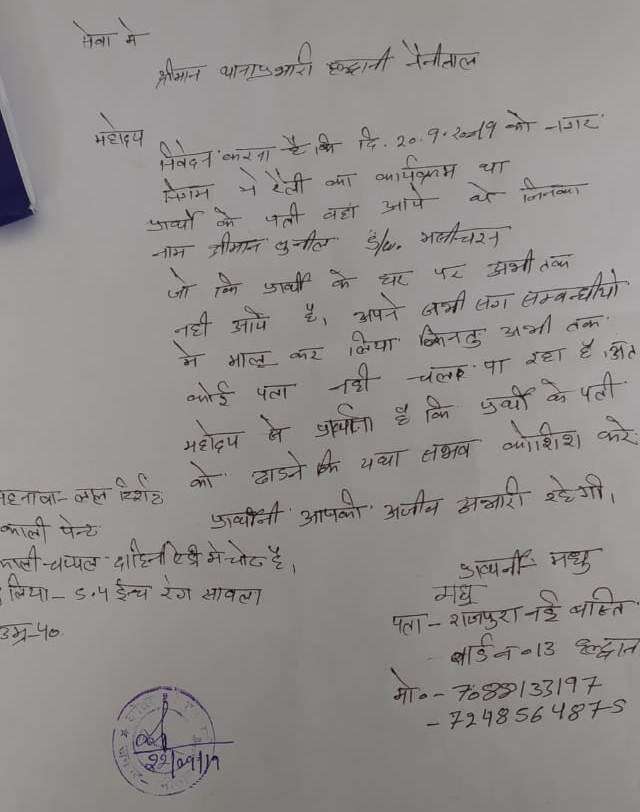 सेवा मे
श्रीमान थानाप्रभारी हल्द्वानी नैनीताल
महोदय
निवेदन करना है कि दि. 20.9.2019 को नगर
निगम मे रैली का कार्यक्रम था
प्रार्थी के पती वहां आये थे जिनका
नाम श्रीमान सुनील S/o.
जो कि प्रार्थी के घर पर अभी तक
नही आये है, अपने सभी सगे सम्बन्धीयो
मे मालू कर लिया किनतु अभी तक
कोई पता नही चल पा रहा है, अत
महोदय से प्रार्थना है कि प्रार्थी के पती
को ढाडने कि यथा संभव कोशिश करे
प्रार्थीनी आपकी अजीव अभारी रहेगी,
पहनावा - लाल
काली पेन्ट
काली - चप्पल - दाहिने मे चोट है,
लिया - 5.4 ईन्च रंग सावला
उम्र - 40
प्रार्थनी - मधु
मधु
पता - राजपुरा नई बस्ति
वार्ड न० 13
मो० - 7088133197
- 7248564875
22/09/19